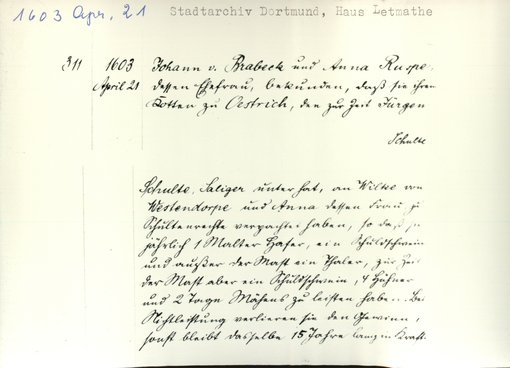 1603 Apr. 21 Stadtarchiv Dortmund, Haus Letmathe
311 1603 Johann v. Brabeck und Anna Ruspe,
April 21 dessen Ehefrau, bekunden, daß sie ihren
Kotten zu Oestrich, den zur Zeit Jürgen
Schulte
Schulte, Saliger unterhat, an Wilke von
Westendorpe und Anna dessen Frau zu
Schultenrechte verpachtet haben, so daß
jährlich 1 Malter Hafer, ein Schuldschwein
und außer der Mast ein Thaler, zur Zeit
der Mast aber ein Schuldschwein, 4 Hühner
und 2 Tage Mähens zu leisten haben. Bei
Nichtleistung verlieren sie den Gewinn,
sonst bleibt dasselbe 15 Jahre lang in Kraft.